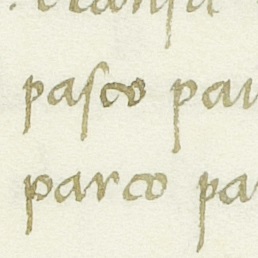 pasco pau
parco pa